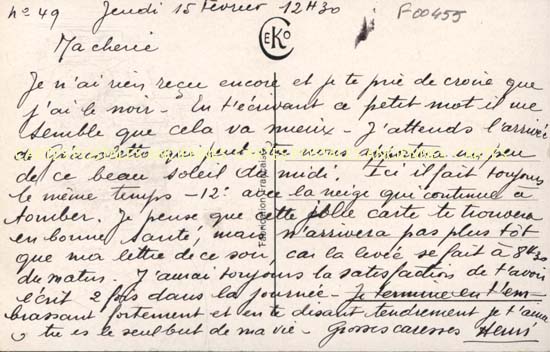 n° 49 Jeudi 15 Février 12H30
F00455
CEKO
Ma chérie
Je n'ai rien reçu encore et je te prie de croire que
j'ai le noir - En t'écrivant ce petit mot il me
semble que cela va mieux - J'attends l'arrivée
de qui peut être nous apportera un peu
de ce beau soleil du midi. Ici il fait toujours
le même temps -12° avec la neige qui continue a
tomber. Je pense que cette jolie carte te trouvera
en bonne santé, mais n'arrivera pas plus tôt
que ma lettre de ce soir, car la levée se fait à 8H30
du matin. J'aurai toujours la satisfaction de t'avoir
écrit 2 fois dans la journée - Je termine en t'em
brassant fortement et en te disant tendrement je t'aime
tu es le seul but de ma vie - Grosses caresses Henri
Fabrication Française